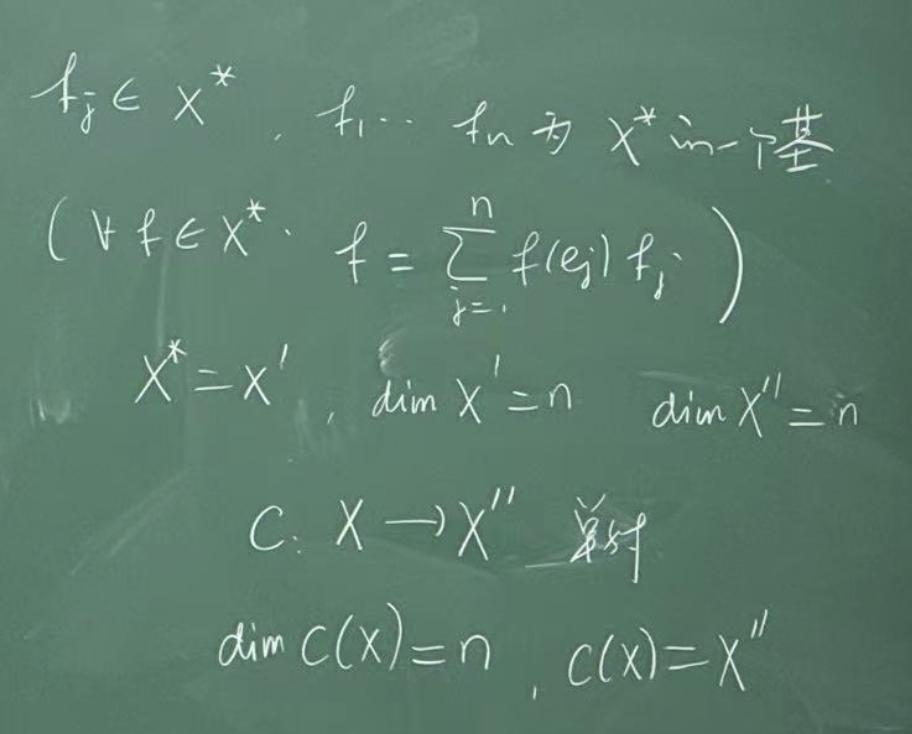 fⱼ ∈ X* , f₁ ⋯ fₙ 为 X* 的一个基
( ∀ f ∈ X* . f = ∑ⱼ₌₁ⁿ f(eⱼ) fⱼ )
X* = X′ , dim X′ = n dim X″ = n
C: X → X″ 单射
dim C(X) = n , C(X) = X″